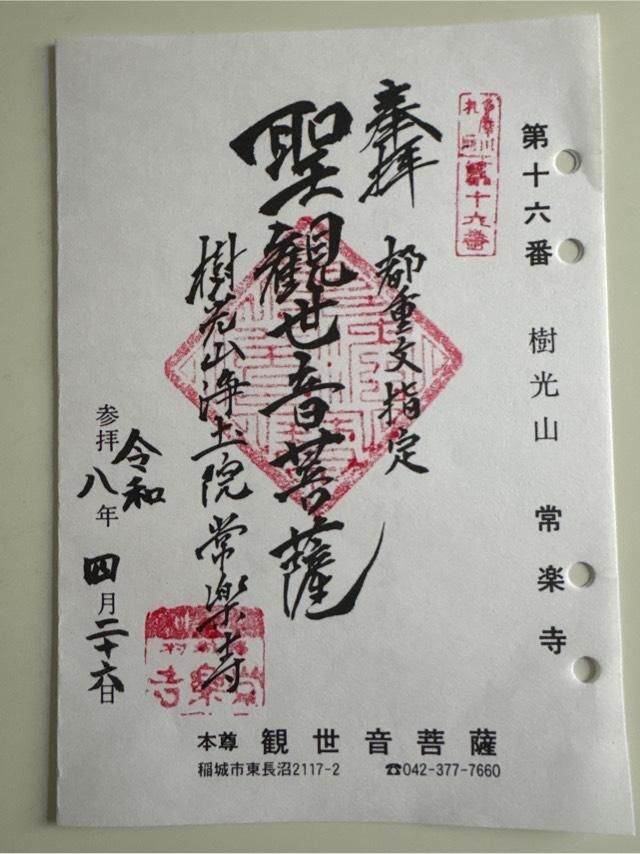 第十六番　樹光山　常楽寺
第十六番
奉拝
都重文指定
聖観世音菩薩
樹光山浄土院常楽寺
参拝
令和
八年
四月二十六日
本尊　観世音菩薩
稲城市東長沼2117-2　☎042-377-7660